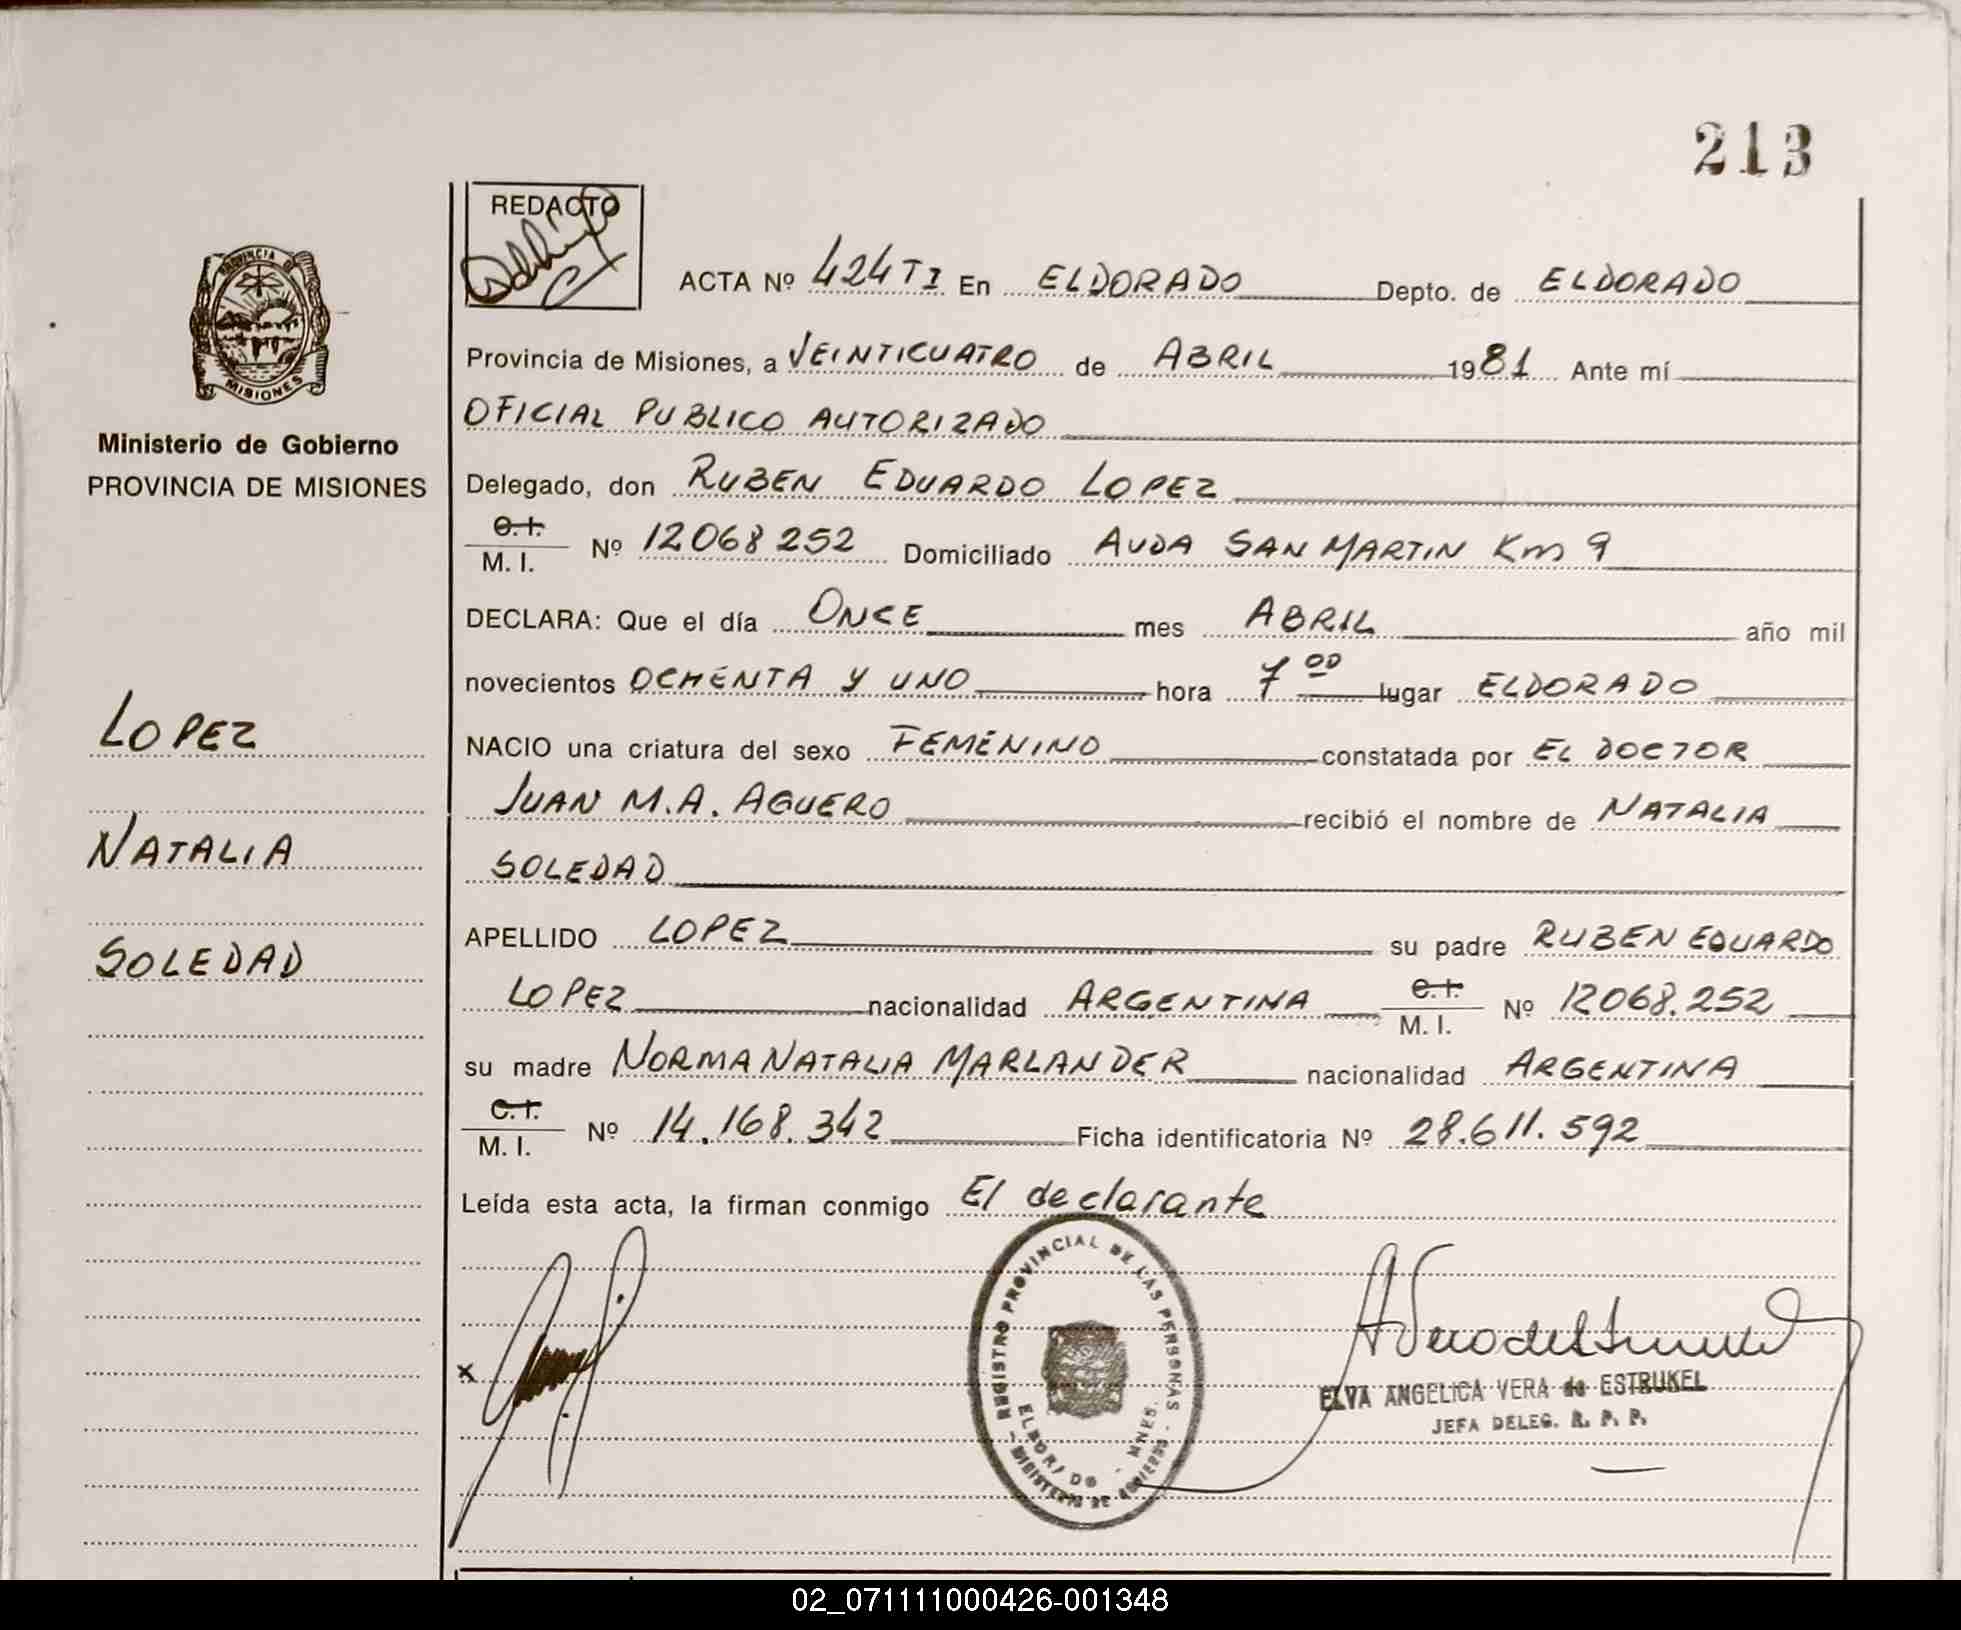 213
REDACTO
ACTA Nº 424 TI En ELDORADO Depto. de ELDORADO
Provincia de Misiones, a VEINTICUATRO de ABRIL 1981 Ante mí
OFICIAL PUBLICO AUTORIZADO
Delegado, don RUBEN EDUARDO LOPEZ
C.I.
M. I. Nº 12068252 Domiciliado AVDA SAN MARTIN Km 9
DECLARA: Que el día ONCE mes ABRIL año mil
novecientos OCHENTA Y UNO hora 7 00 lugar ELDORADO
NACIO una criatura del sexo FEMENINO constatada por EL DOCTOR
JUAN M.A. AGUERO recibió el nombre de NATALIA
SOLEDAD
APELLIDO LOPEZ su padre RUBEN EDUARDO
LOPEZ nacionalidad ARGENTINA C.I. M. I. Nº 12068.252
su madre NORMA NATALIA MARLANDER nacionalidad ARGENTINA
C.I.
M. I. Nº 14.168.342 Ficha identificatoria Nº 28.611.592
Leída esta acta, la firman conmigo El declarante
PROVINCIA DE
MISIONES
Ministerio de Gobierno
PROVINCIA DE MISIONES
LOPEZ
NATALIA
SOLEDAD
x
REGISTRO PROVINCIAL DE LAS PERSONAS
- MINISTERIO DE GOBIERNO -
ELDORADO - MNES.
ELVA ANGELICA VERA de ESTRUKEL
JEFA DELEG. R. P. P.
02_071111000426-001348